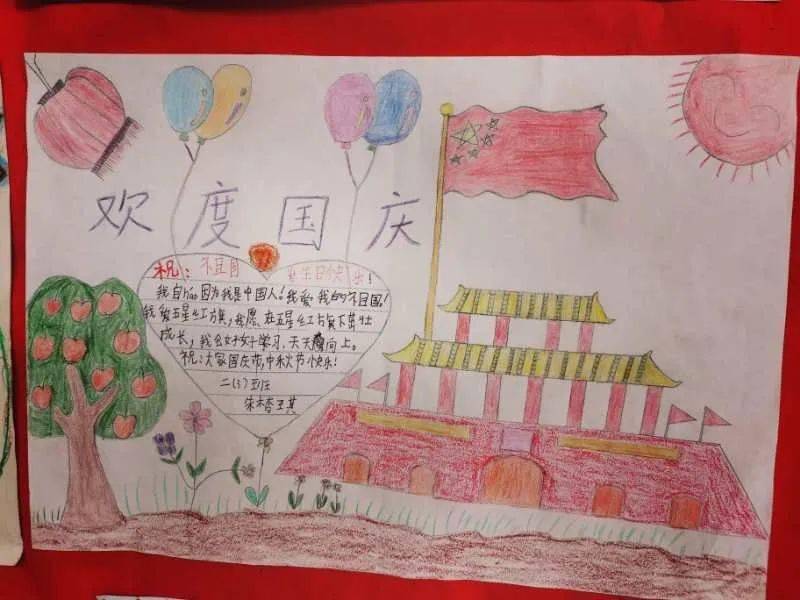 欢度国庆
祝：祖国 生日快乐！
我自hao因为我是中国人！我爱我的祖国！
我爱五星红旗，我愿在五星红旗下茁壮
成长，我会好好学习、天天向上。
祝：大家国庆节，中秋节快乐！
二(3)班